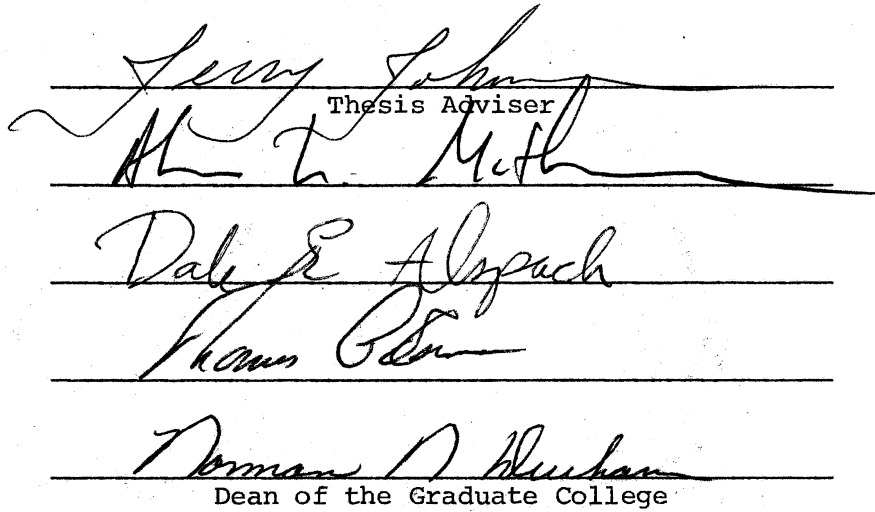 Jerry Johnson
Thesis Adviser
Dale E Alspach
Thomas
Norman N Durham
Dean of the Graduate College